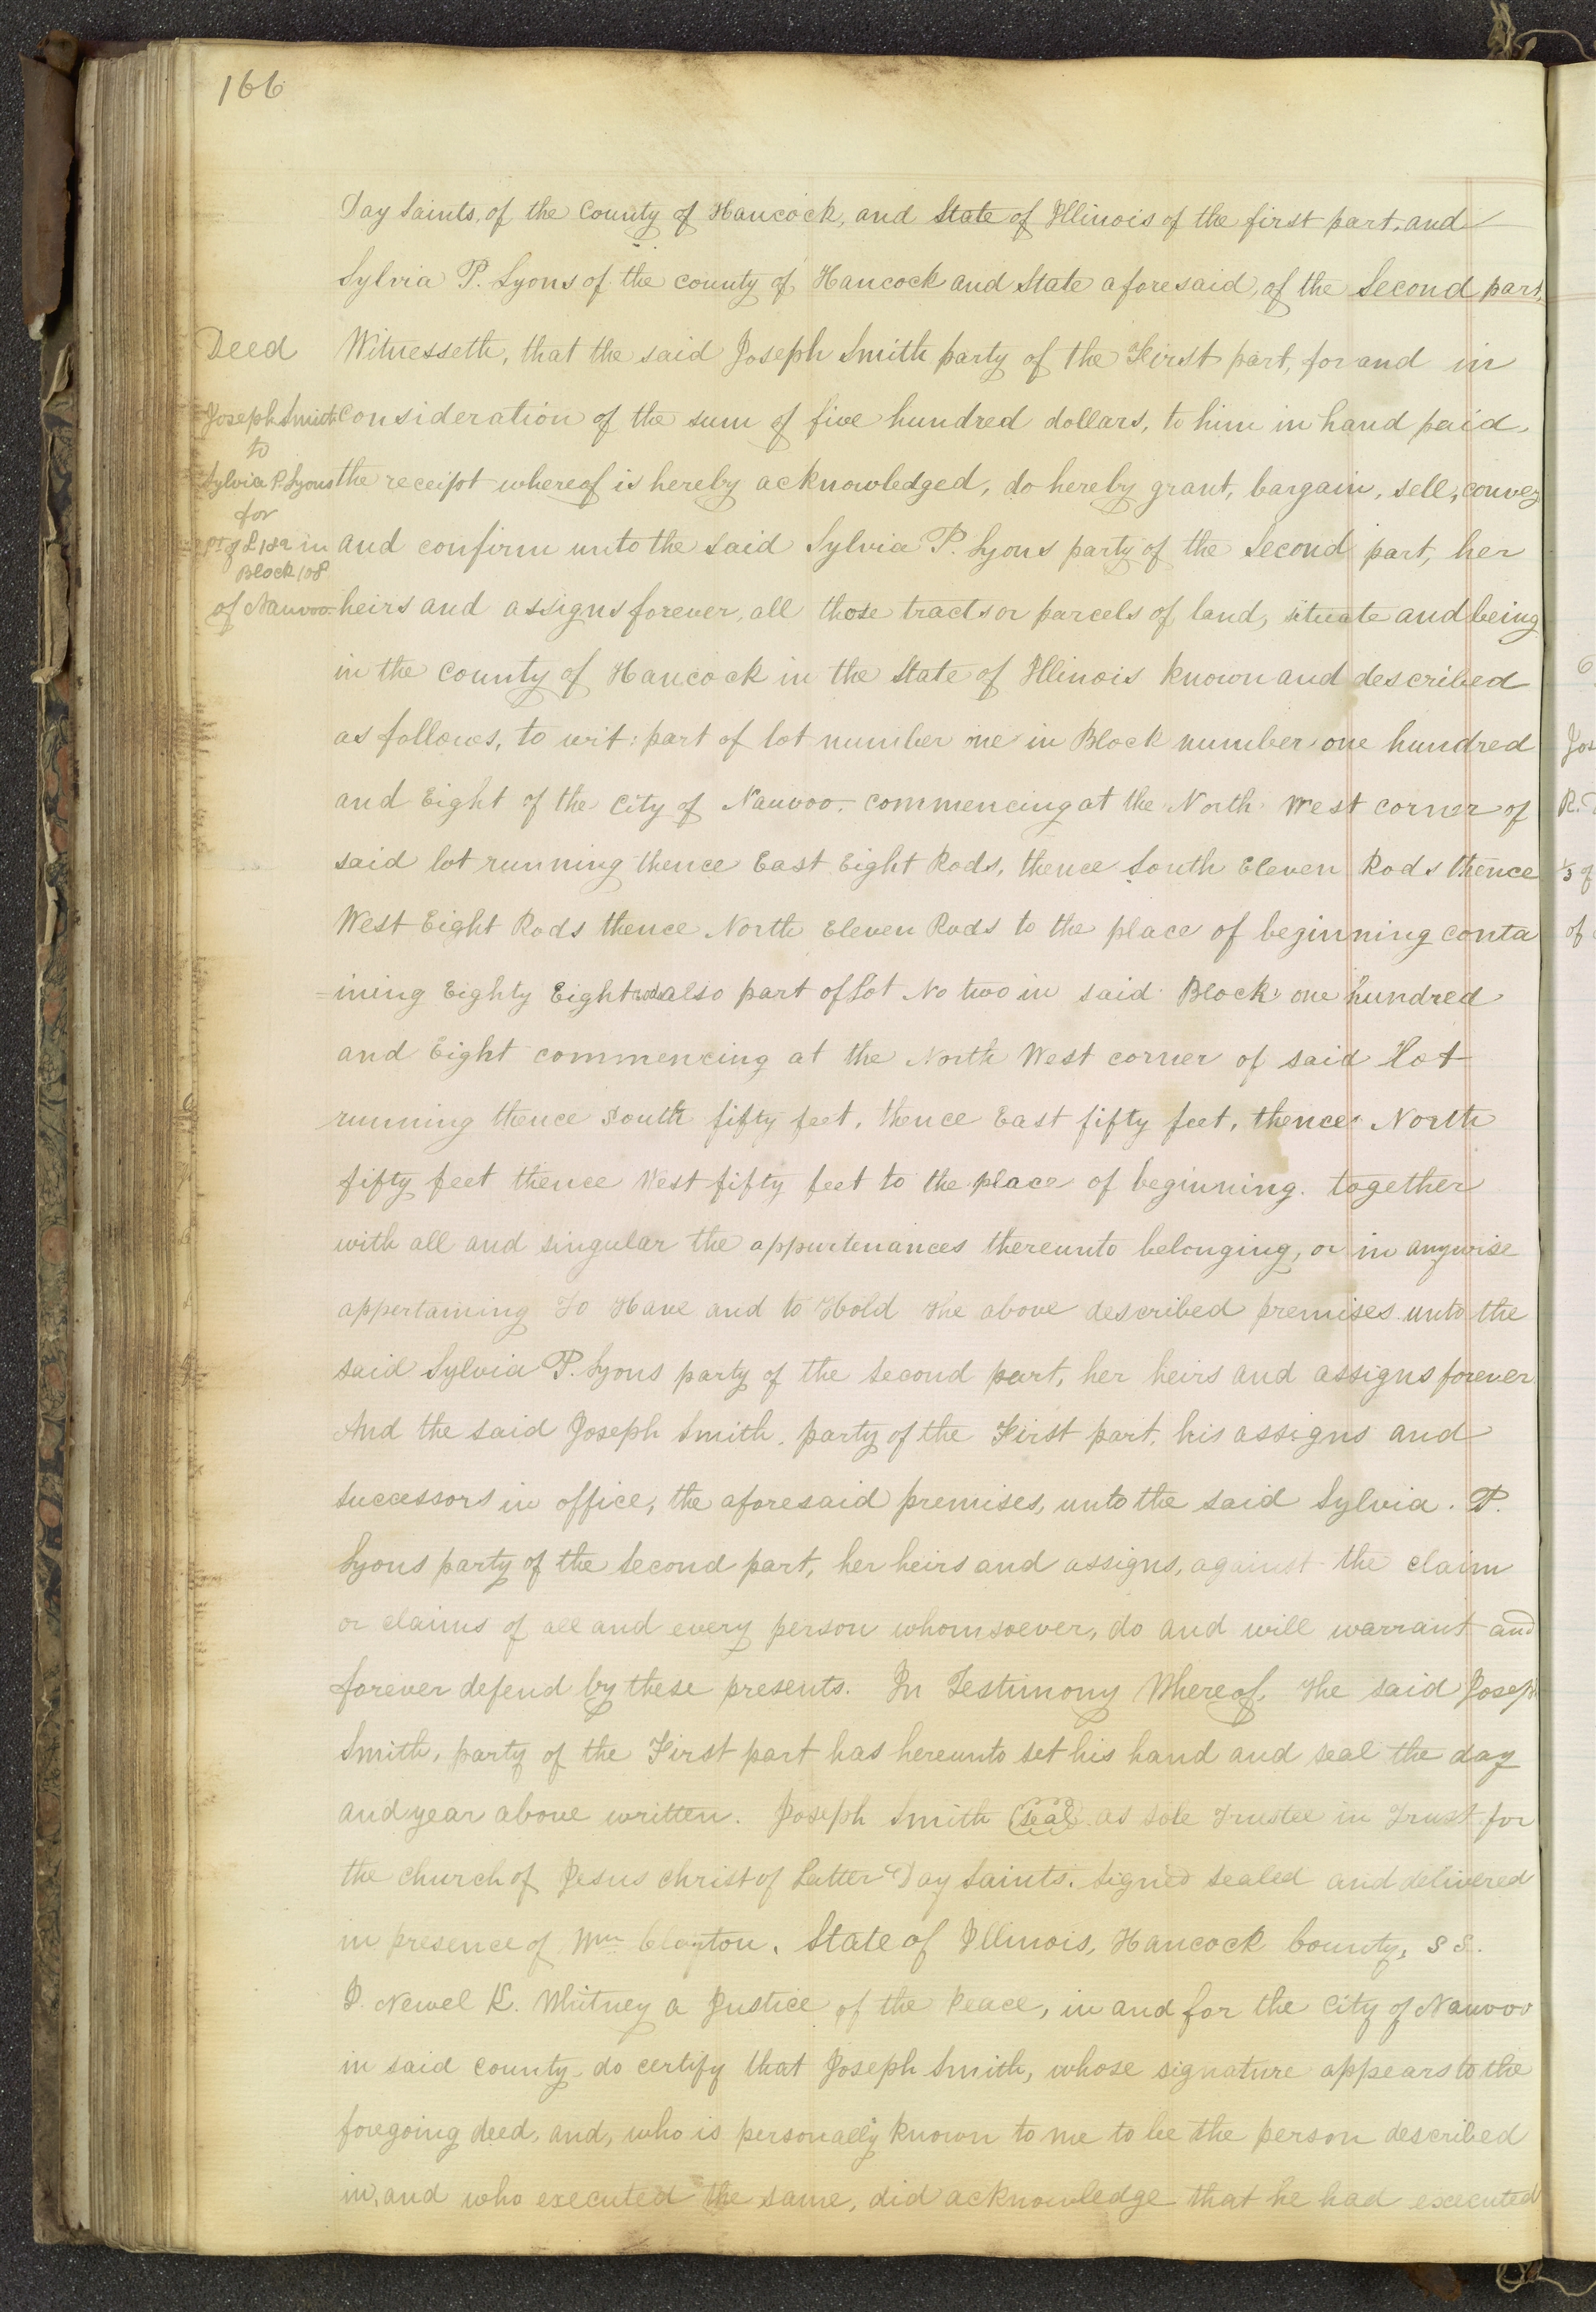 166
Day Saints, of the County of Hancock, and State of Illinois of the first part, and
Sylvia P. Lyons of the county of Hancock and State aforesaid, of the Second part,
Deed
Witnesseth, that the said Joseph Smith party of the First part, for and in
Joseph Smith
consideration of the sum of five hundred dollars, to him in hand paid,
to
Sylvia P. Lyons
the receipt whereof is hereby acknowledged, do hereby grant, bargain, sell, convey
for
pt of L 1 & 2 in
and confirm unto the said Sylvia P. Lyons party of the Second part, her
Block 108
of Nauvoo
heirs and assigns forever, all those tracts or parcels of land, situate and being
in the County of Hancock in the State of Illinois known and described
as follows, to wit: part of lot number one in Block number one hundred
and Eight of the City of Nauvoo- commencing at the North West corner of
said lot running thence East Eight Rods, thence South Eleven Rods thence
West Eight Rods thence North Eleven Rods to the place of beginning conta
=ining Eighty Eight rods also part of Lot No two in said Block one hundred
and Eight commencing at the North West corner of said Lot
running thence South fifty feet, thence East fifty feet, thence North
fifty feet thence West fifty feet to the place of beginning. together
with all and singular the appurtenances thereunto belonging, or in anywise
appertaining To Have and to Hold the above described premises unto the
said Sylvia P. Lyons party of the second part, her heirs and assigns forever
And the said Joseph Smith, party of the First part, his assigns and
successors in office, the aforesaid premises, unto the said Sylvia. P.
Lyons party of the Second part, her heirs and assigns, against the claim
or claims of all and every person whomsoever, do and will warrant and
forever defend by these presents. In Testimony Whereof, the said Joseph
Smith, party of the First part has hereunto set his hand and seal the day
and year above written. Joseph Smith (seal) as sole Trustee in Trust for
the church of Jesus christ of Latter Day Saints. Signed sealed and delivered
in presence of Wm Clayton. State of Illinois, Hancock County, S S.
I. Newel K. Whitney a Justice of the Peace, in and for the City of Nauvoo
in said county do certify that Joseph Smith, whose signature appears to the
foregoing deed, and, who is personally known to me to be the person described
in, and who executed the same, did acknowledge that he had executed